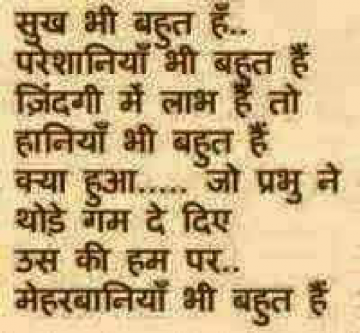 सुख भी बहुत हैं..
परेशानियाँ भी बहुत हैं
ज़िंदगी में लाभ हैं तो
हानियाँ भी बहुत हैं
क्या हुआ..... जो प्रभु ने
थोडे गम दे दिए
उस की हम पर..
मेहरबानियाँ भी बहुत हैं